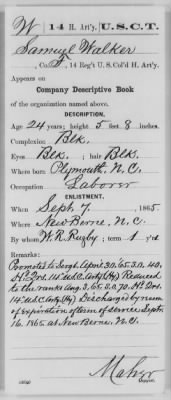 W | 14 H. Art'y. | U.S.C.T.
Samuel Walker
, Co. F, 14 Reg't U.S. Col'd H. Art'y.
Appears on
Company Descriptive Book
of the organization named above.
DESCRIPTION.
Age 24 years; height 5 feet 8 inches.
Complexion Blk.
Eyes Blk.; hair Blk.
Where born Plymouth, N.C.
Occupation Laborer
ENLISTMENT.
When Sept. 7, 1865
Where New Berne, N.C.
By whom W.R. Rugby; term 1 y'rs.
Remarks:
Promoted to Sergt. April 30, 65. S.O. 40,
Hd. Qrs. 14" U.S.C. Arty (Hy) Reduced
to the ranks Aug. 3, 65. S.O. 70. Hd. Qrs.
14" U.S.C. Arty (Hy) Discharged by
of expiration of term of service. Septr.
16. 1865 at New Berne, N.C.
Copyist.